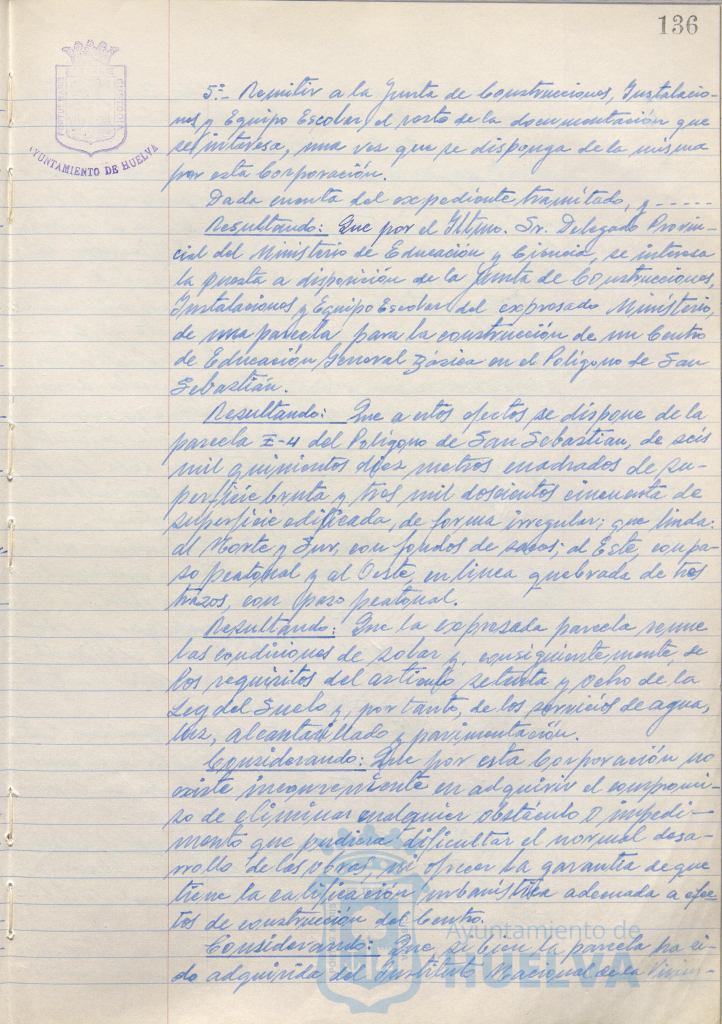 136
AYUNTAMIENTO DE HUELVA
5º.- Remitir a la Junta de Construcciones, Instalacio-
nes y Equipo Escolar, el resto de la documentación que
se interesa, una vez que se disponga de la misma
por esta Corporación.
Dada cuenta del expediente tramitado, y-----
Resultando: Que por el Iltmo. Sr. Delegado Provin-
cial del Ministerio de Educación y Ciencia, se interesa
la puesta a disposición de la Junta de Construcciones,
Instalaciones y Equipo Escolar del expresado Ministerio,
de una parcela para la construcción de un Centro
de Educación General Básica en el Polígono de San
Sebastián.
Resultando: Que a estos efectos se dispone de la
parcela E-4 del Polígono de San Sebastian, de seis
mil quinientos diez metros cuadrados de su-
perficie bruta y tres mil doscientos cincuenta de
superficie edificada, de forma irregular; que linda:
al Norte y Sur, con fondos de sacos; al Este, con pa-
so peatonal y al Oeste, en línea quebrada de tres
trazos, con paso peatonal.
Resultando: Que la expresada parcela reune
las condiciones de solar y, consiguientemente, de
los requisitos del artículo setenta y ocho de la
Ley del Suelo y, por tanto, de los servicios de agua,
luz, alcantarillado y pavimentación.
Considerando: Que por esta Corporación no
existe inconveniente en adquirir el compromi-
so de eliminar cualquier obstáculo o impedi-
mento que pudiera dificultar el normal desa-
rrollo de las obras, ni ofrecer la garantía de que
tiene la calificación urbanística adecuada a efec-
tos de construcción del Centro.
Considerando: Que si bien la parcela ha si-
do adquirida del Instituto Nacional de la Vivien-
Ayuntamiento de
HUELVA